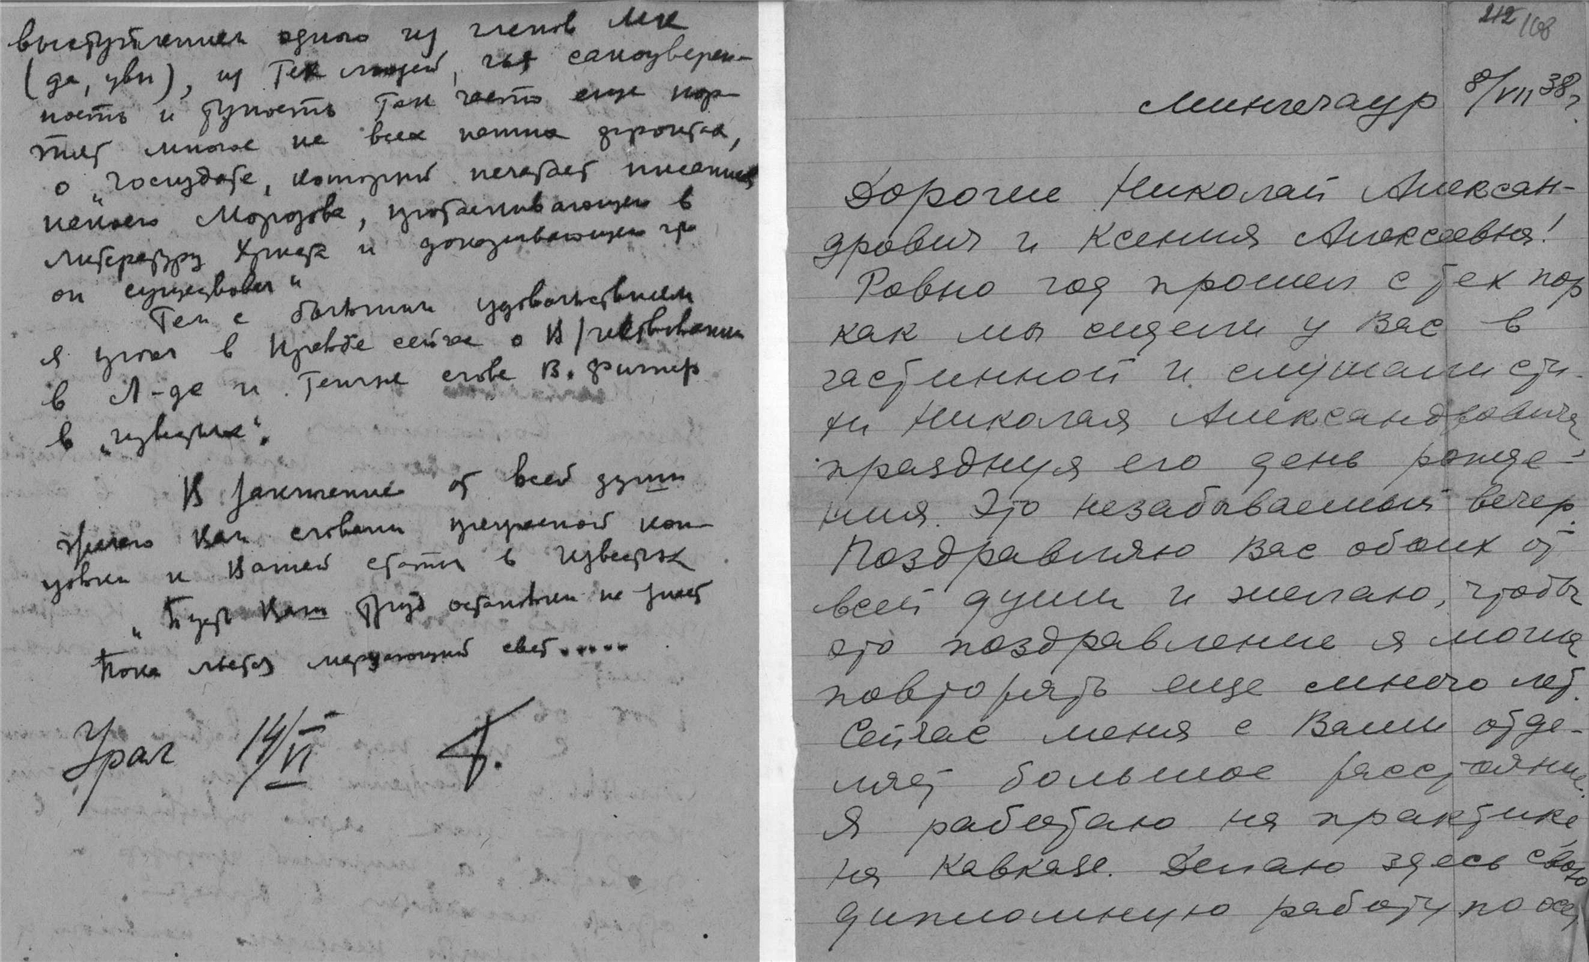 выступлением одного из членов МК
(да, увы), из тех людей, чья самоуверен-
ность и тупость так часто еще пор-
тят многое на всех наших фронтах,
о „государстве, который печатает писания
некоего Морозова, протаскивающего в
литературу Христа и доказывающего что
он существовал“
Тем с большим удовольствием
я узнал в Правде сейчас о В/чествовании
в Л-де и теплые слова В. Фигнер
в „Известиях“.
В заключение от всей души
желаю Вам словами прекрасной кон-
цовки и Вашей статьи в Известиях
„Пусть Ваш труд остановки не знает
Пока льется мерцающий свет.....
Урал 14/VI
212/108
Мингечаур 8/VII 38 г.
Дорогие Николай Алексан-
дрович и Ксения Алексеевна!
Ровно год прошел с тех пор
как мы сидели у Вас в
гастинной и слушали сти-
хи Николая Александровича
празднуя его день рожде-
ния. Это незабываемый вечер.
Поздравляю Вас обоих от
всей души и желаю, чтобы
это поздравление я могла
повторять еще много лет.
Сейчас меня с Вами отде-
ляет большое расстояние.
Я работаю на практике
на Кавказе. Делаю здесь свою
дипломную работу по